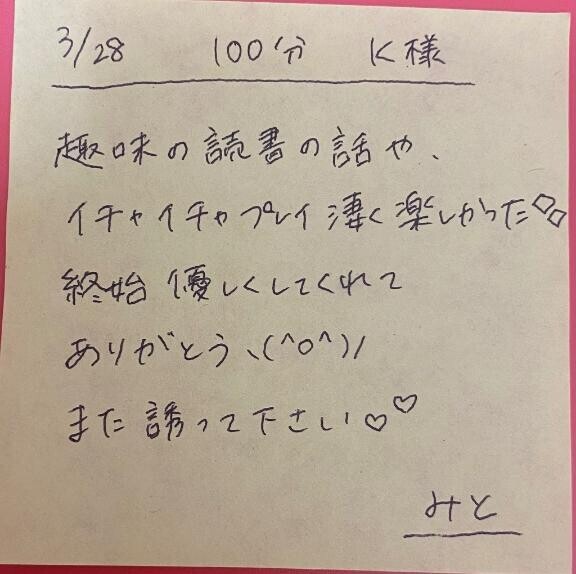 3/28 100分 K様
趣味の読書の話や、
イチャイチャプレイ凄く楽しかった◇◇
終始優しくしてくれて
ありがとうヽ(^o^)/
また誘って下さい♡♡
みと